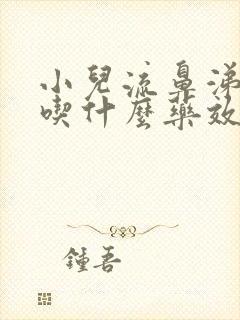 小兒流鼻涕
喫什麼藥效
鍾吾